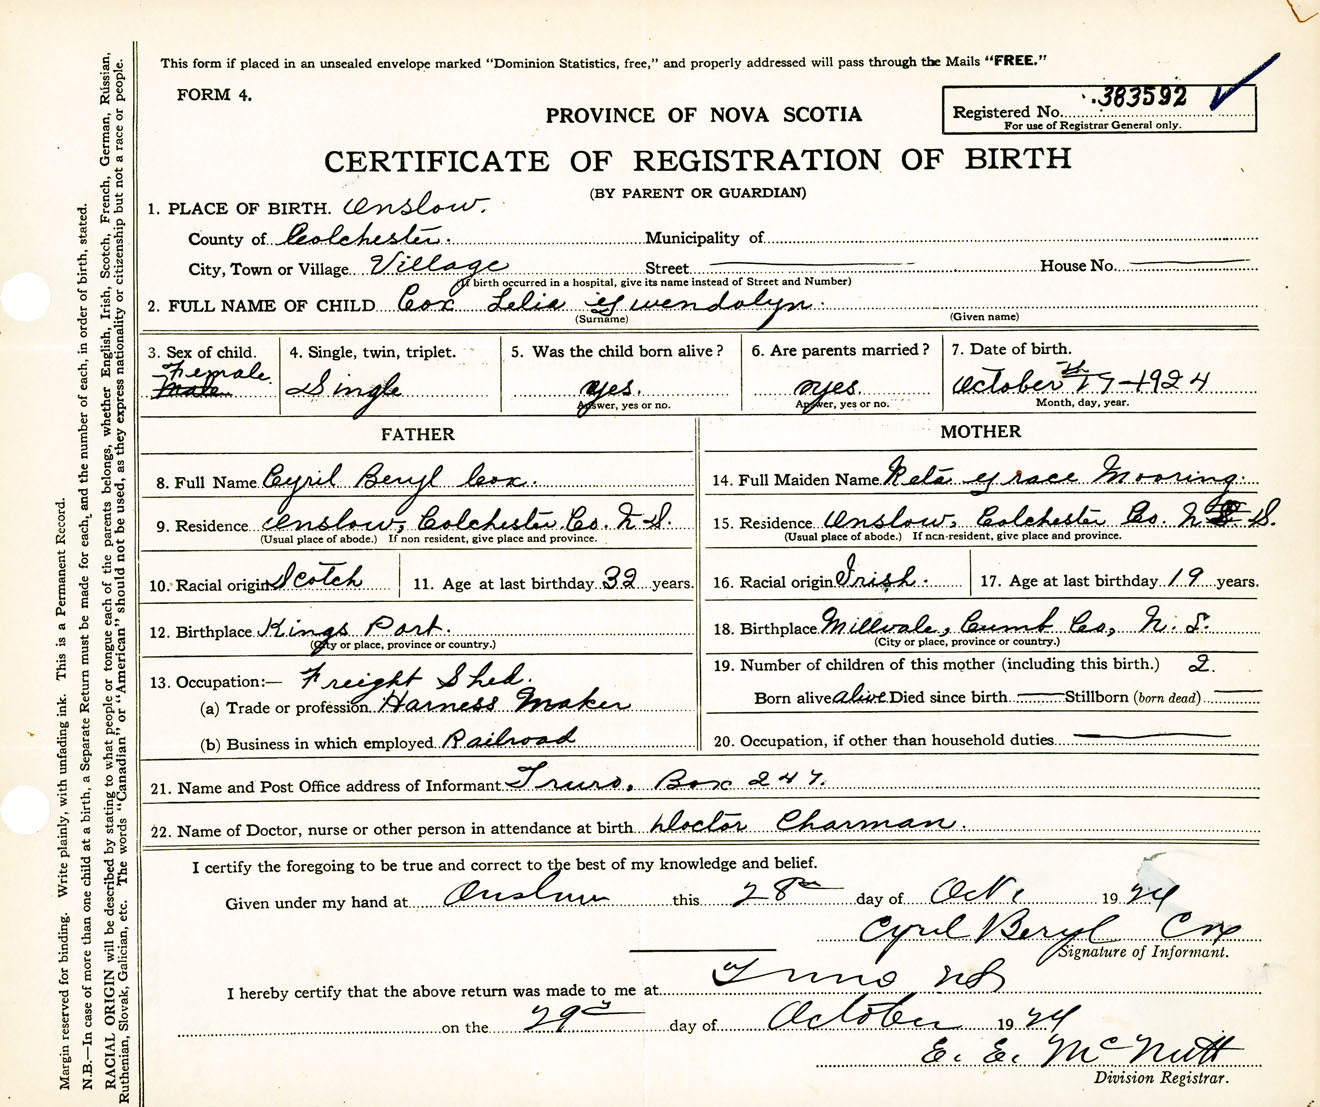 This form if placed in an unsealed envelope marked "Dominion Statistics, free," and properly addressed will pass through the Mails "FREE."
FORM 4.
Registered No. 383592
For use of Registrar General only.
PROVINCE OF NOVA SCOTIA
CERTIFICATE OF REGISTRATION OF BIRTH
(BY PARENT OR GUARDIAN)
1. PLACE OF BIRTH. Onslow.
County of Colchester. Municipality of
City, Town or Village Village Street House No.
(If birth occurred in a hospital, give its name instead of Street and Number)
2. FULL NAME OF CHILD Cox Lelia Gwendolyn.
(Surname) (Given name)
3. Sex of child. 4. Single, twin, triplet. 5. Was the child born alive? 6. Are parents married? 7. Date of birth.
Female.
Male Single yes. yes. October 17th 1924
Answer, yes or no. Answer, yes or no. Month, day, year.
FATHER MOTHER
8. Full Name Cyril Beryl Cox. 14. Full Maiden Name Reta Grace Mooring.
9. Residence Onslow, Colchester Co. N.S. 15. Residence Onslow, Colchester Co. N S.
(Usual place of abode.) If non resident, give place and province. (Usual place of abode.) If non-resident, give place and province.
10. Racial origin Scotch 11. Age at last birthday 32 years. 16. Racial origin Irish. 17. Age at last birthday 19 years.
12. Birthplace Kings Port. 18. Birthplace Millvale, Cumb Co, N. S.
(City or place, province or country.) (City or place, province or country.)
13. Occupation:— Freight Shed. 19. Number of children of this mother (including this birth.) 2.
(a) Trade or profession Harness Maker Born alive alive Died since birth Stillborn (born dead)
(b) Business in which employed Railroad 20. Occupation, if other than household duties
21. Name and Post Office address of Informant Truro, Box 247.
22. Name of Doctor, nurse or other person in attendance at birth Doctor Charman.
I certify the foregoing to be true and correct to the best of my knowledge and belief.
Given under my hand at Onslow this 28th day of Oct. 1924
Cyril Beryl Cox
Signature of Informant.
I hereby certify that the above return was made to me at Truro NS
on the 29th day of October 1924
E. E. McNutt
Division Registrar.
Margin reserved for binding. Write plainly, with unfading ink. This is a Permanent Record.
N.B.—In case of more than one child at a birth, a Separate Return must be made for each, and the number of each, in order of birth, stated.
RACIAL ORIGIN will be described by stating to what people or tongue each of the parents belongs, whether English, Irish, Scotch, French, German, Russian,
Ruthenian, Slovak, Galician, etc. The words "Canadian" or "American" should not be used, as they express nationality or citizenship but not a race or people.